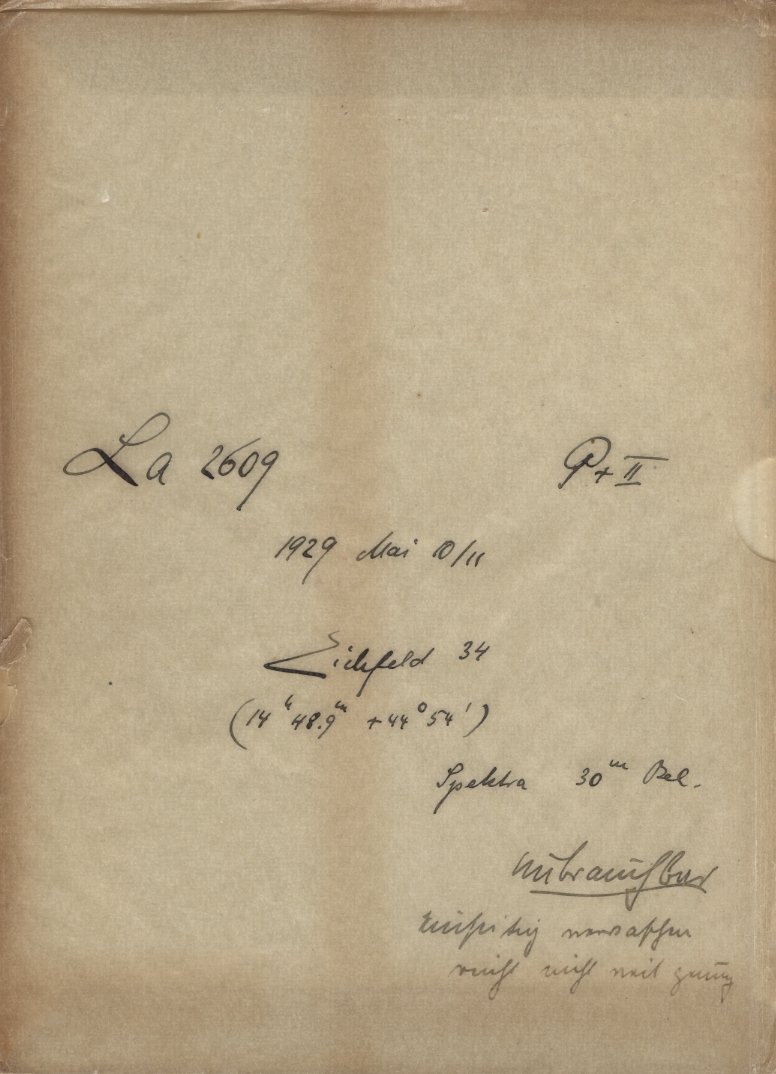 La 2609 P + II
1929 Mai 10/11
Eichfeld 34
(14ʰ 48.9ᵐ +44° 54')
Spektra 30ᵐ Bel.
unbrauchbar
einseitig verwaschen
reicht nicht weit genug